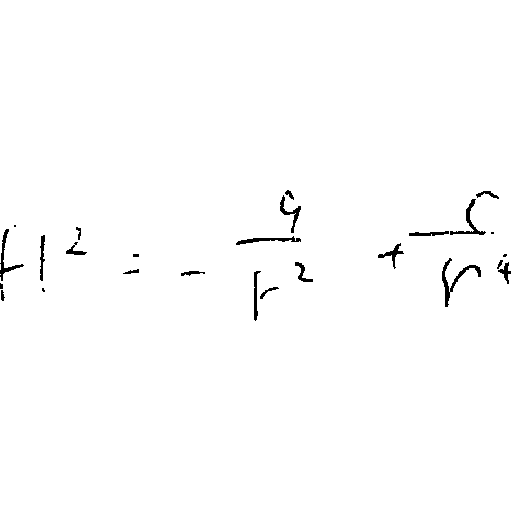 H^2 = -\frac{9}{r^2} + \frac{c}{r^4}